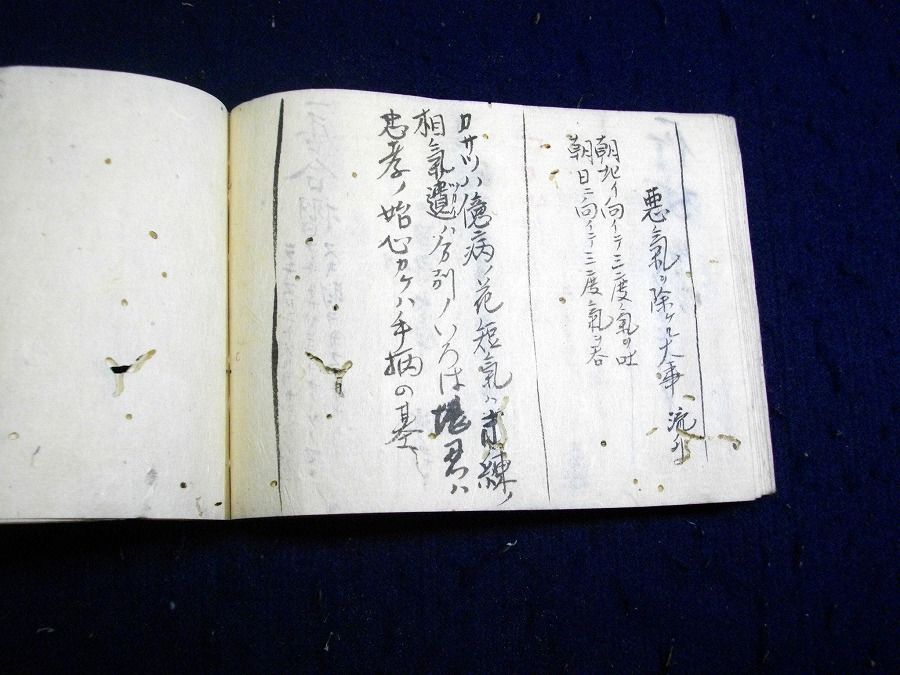 悪氣ヲ除ケル大事 流外
朝北イ向イテ三度氣ヲ吐
朝日ニ向イテ三度氣ヲ呑
ロサツハ億病ノ花短氣ハ未練ノ
相氣遺ハ分別ノいろは 君ハ
忠孝ノ始心カケハ手柄の基